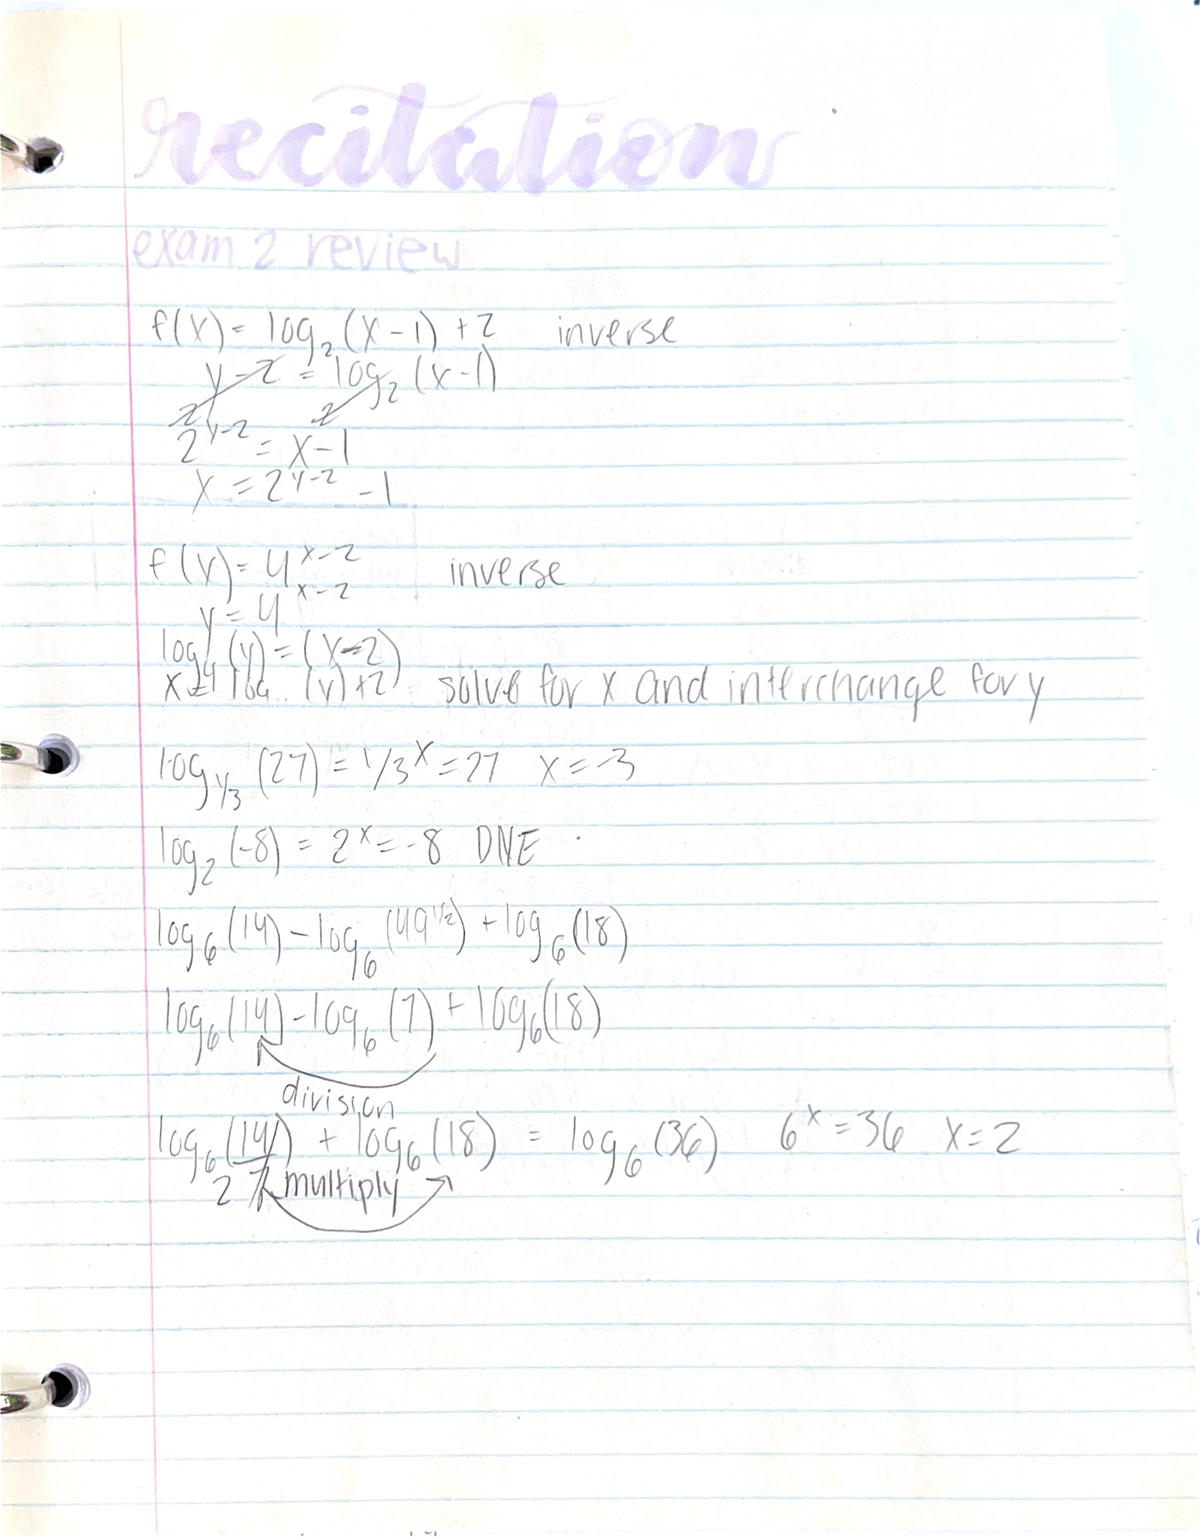 recitation
exam 2 review
f(x) = log₂(x-1) + 2 inverse
y-2 = log₂(x-1)
2 2
2^(y-2) = x-1
x = 2^(y-2) - 1
f(x) = 4^(x-2) inverse
y = 4^(x-2)
log₄(y) = (x-2)
x = log₄(y)+2) solve for x and interchange for y
log_1/3 (27) = 1/3^x = 27 x = -3
log₂(-8) = 2^x = -8 DNE
log₆(14) - log₆(49^1/2) + log₆(18)
log₆(14) - log₆(7) + log₆(18)
division
log₆(14/7) + log₆(18) = log₆(36) 6^x = 36 x = 2
2 multiply